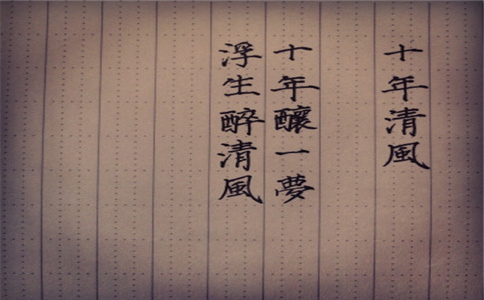 十年清風
十年釀一夢
浮生醉清風